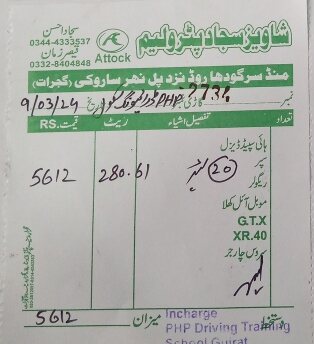 شاویز سجاد پٹرولیم
سجاد احسن
0344-4333537
قیصر زمان
0332-8404848
Attock
منڈ سرگودھا روڈ نزد پل نھر ساروکی (گجرات)
نمبر 2734
گاڑی نمبر PHP
تاریخ 9/03/24
تعداد تفصیل اشیاء ریٹ قیمت .RS
ہائی سپیڈ ڈیزل
سپر 20 لیٹر 280.61 5612
ریگولر
موبل آئل کھلا
G.T.X
XR.40
سروس چارجر
میزان 5612
دستخط
Incharge
PHP Driving Training
School Gujrat